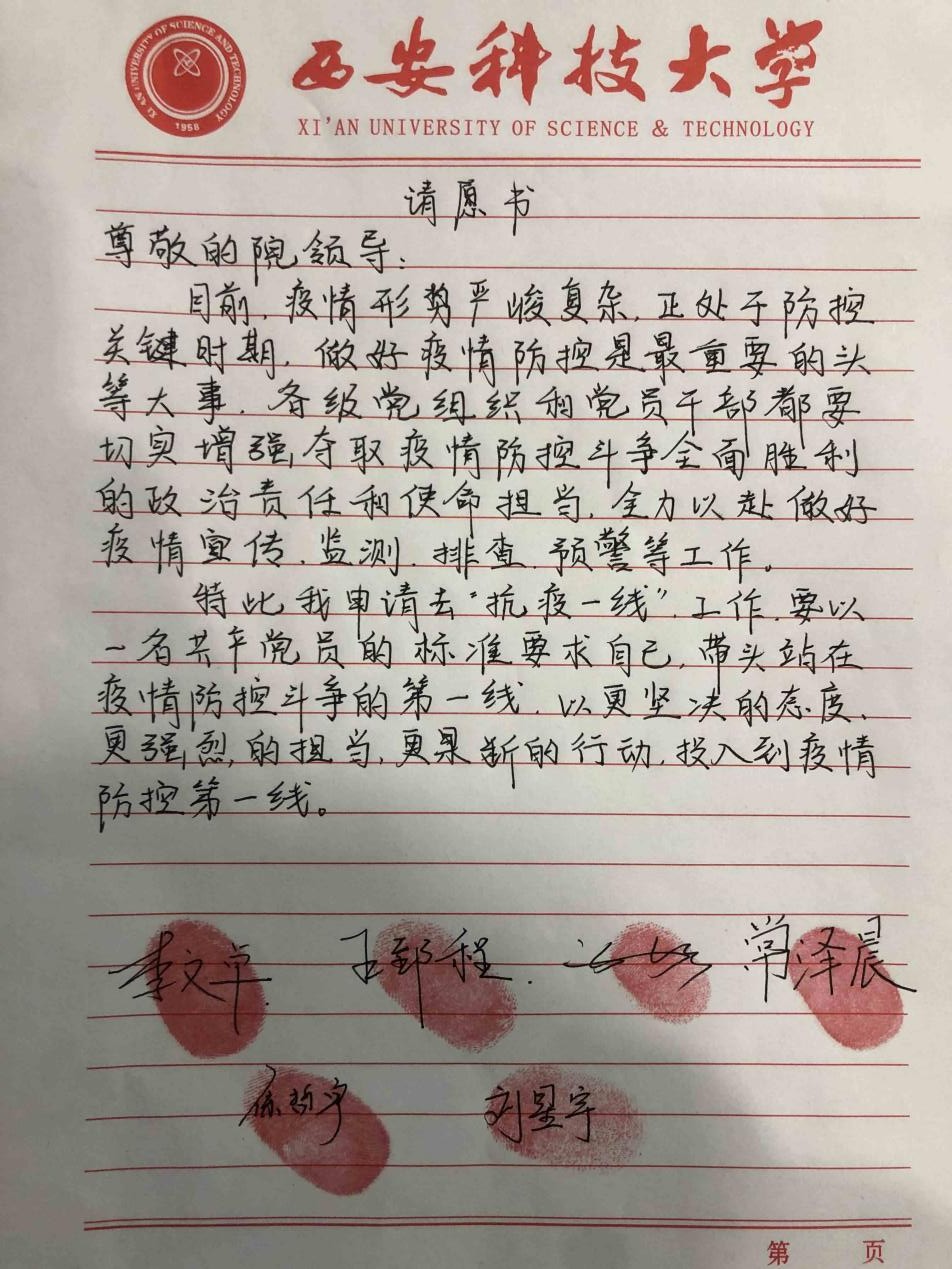 XI'AN UNIVERSITY OF SCIENCE AND TECHNOLOGY
1958
西安科技大学
XI'AN UNIVERSITY OF SCIENCE & TECHNOLOGY
请愿书
尊敬的院领导:
目前,疫情形势严峻复杂,正处于防控
关键时期,做好疫情防控是最重要的头
等大事,各级党组织和党员干部都要
切实增强夺取疫情防控斗争全面胜利
的政治责任和使命担当,全力以赴做好
疫情宣传、监测、排查、预警等工作。
特此我申请去“抗疫一线”工作,要以
一名共产党员的标准要求自己,带头站在
疫情防控斗争的第一线,以更坚决的态度、
更强烈的担当,更果断的行动,投入到疫情
防控第一线。
李文卓 王郅程 常泽晨
刘星宇
第 页